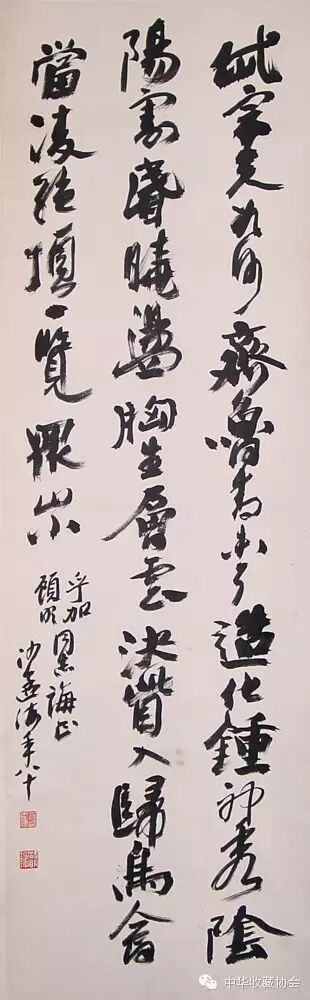 岱宗夫如何齊魯青未了造化鍾神秀陰
陽割昏曉盪胸生層雲決眥入歸鳥會
當凌絕頂一覽眾山小
乎加
顧明同志誨正
沙孟海年八十
中华收藏协会